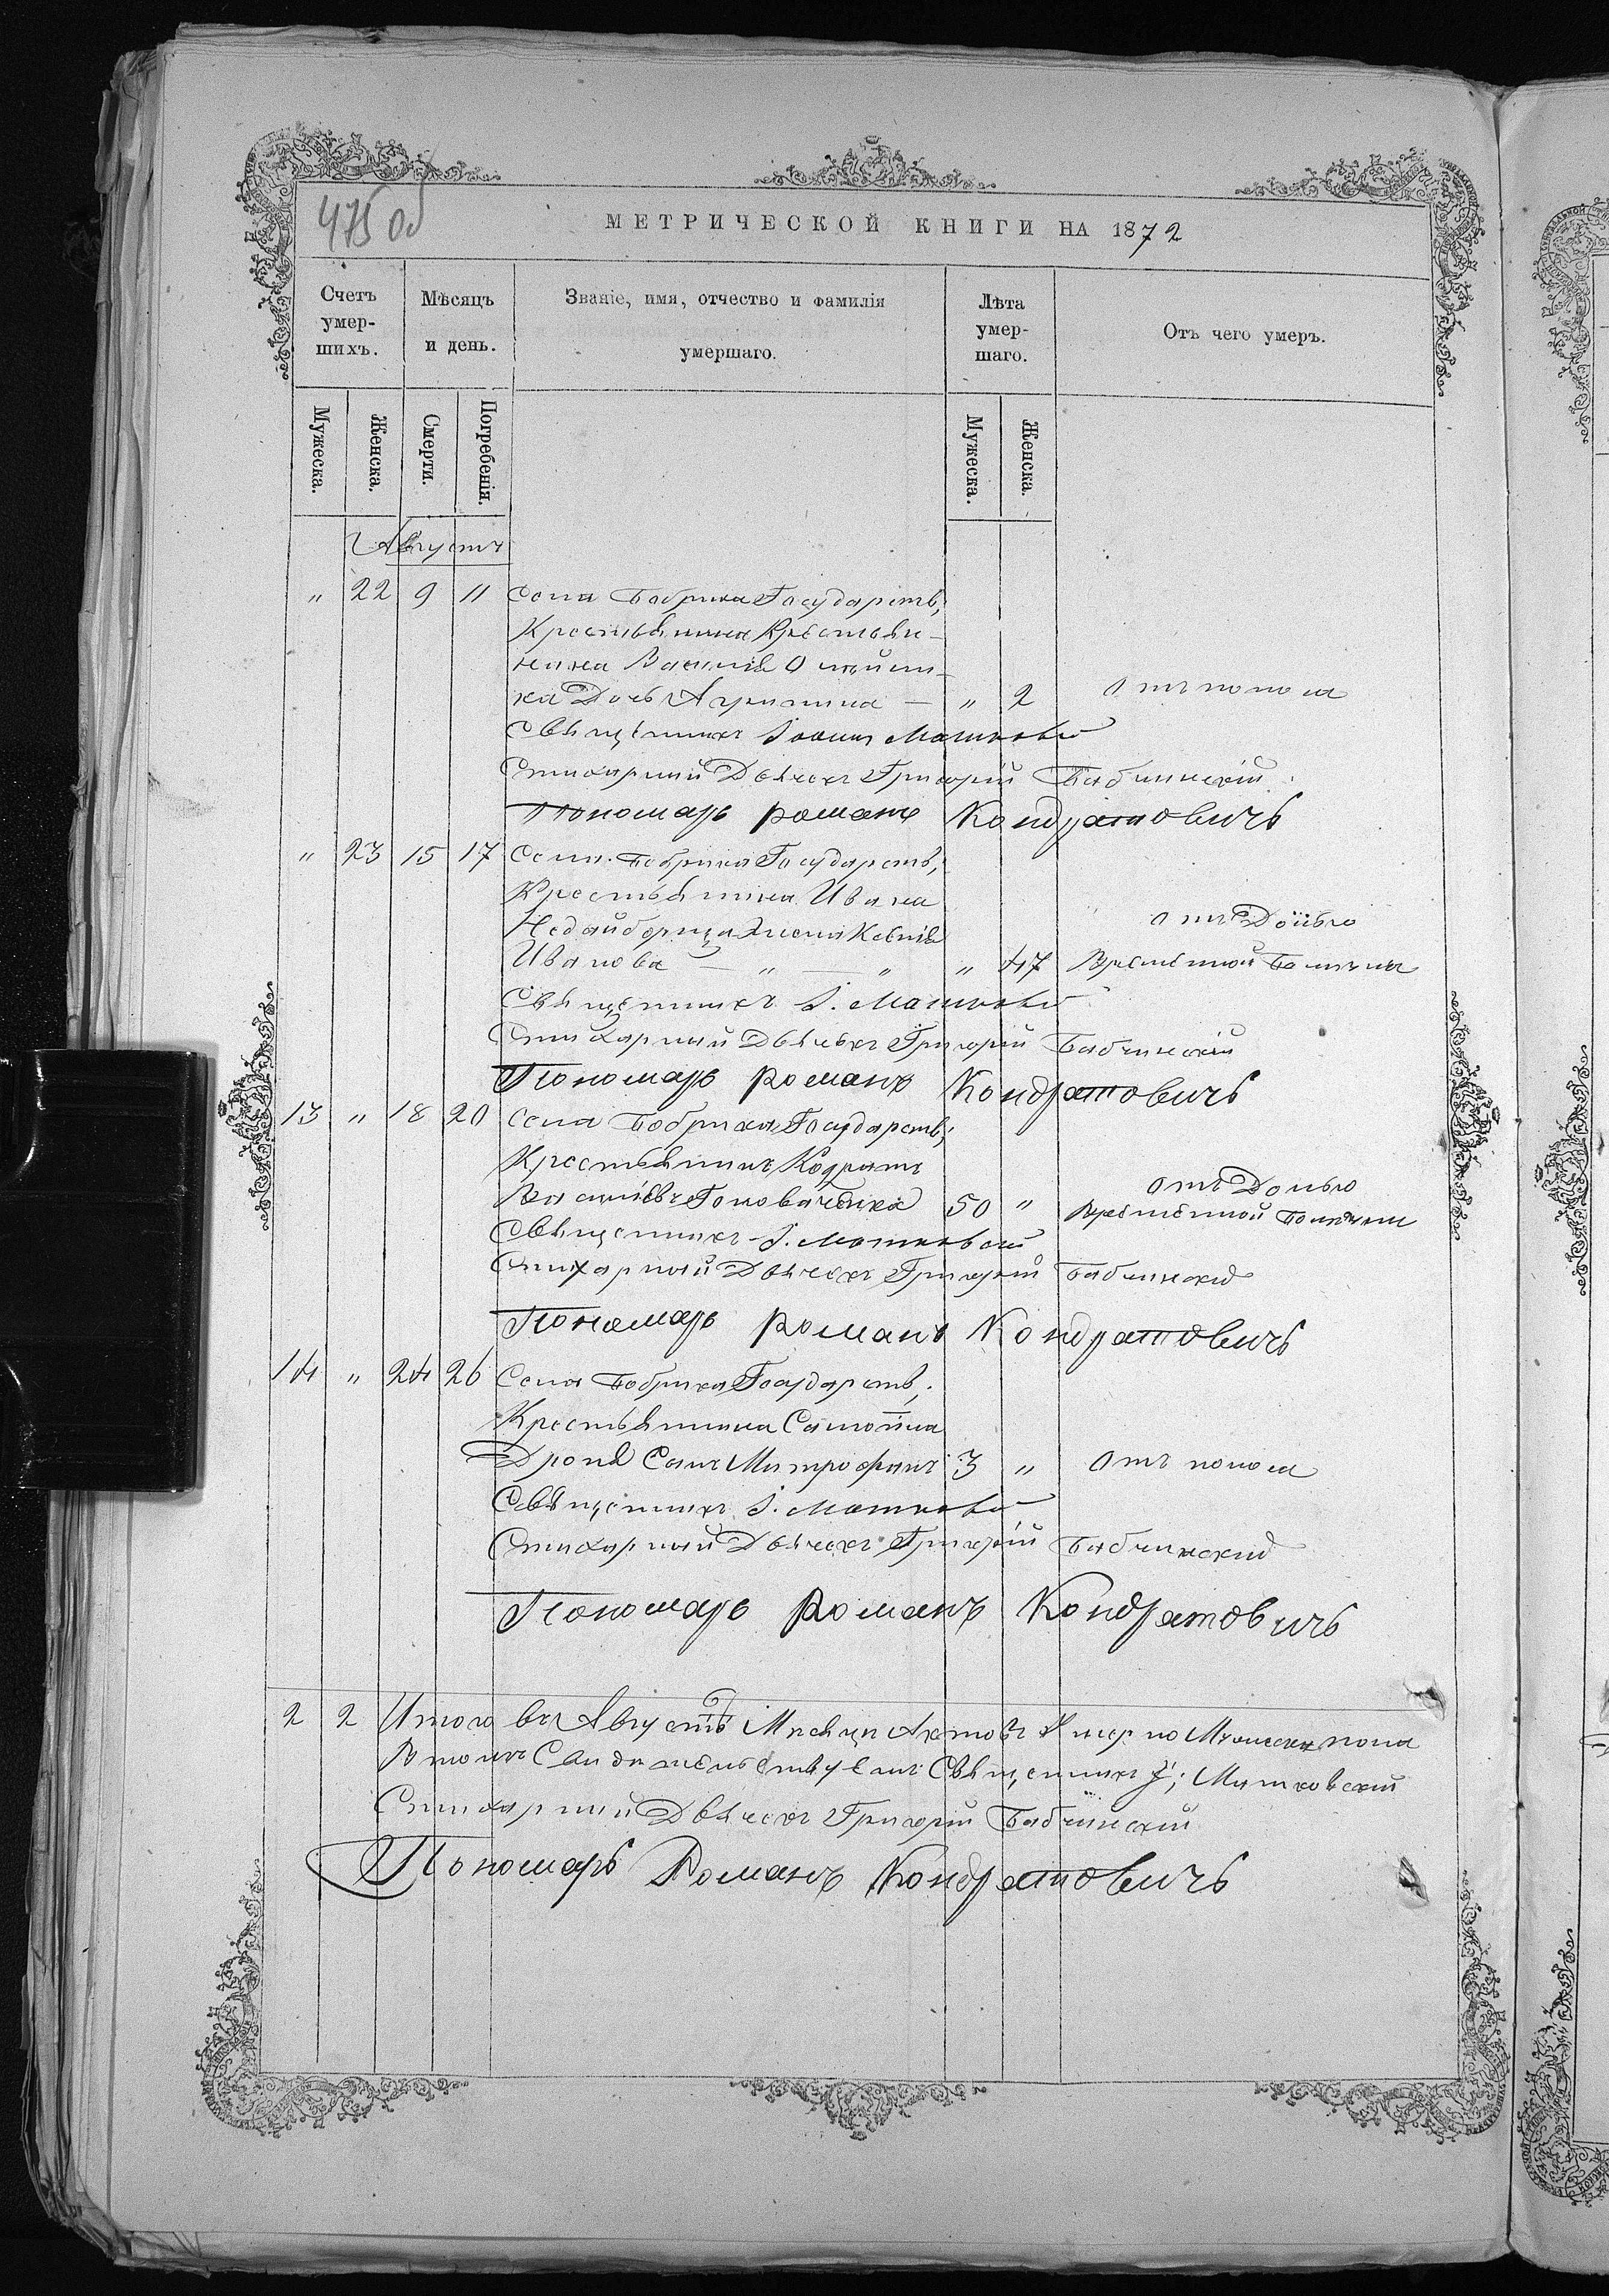 475 об
МЕТРИЧЕСКОЙ КНИГИ НА 1872
Счетъ умер-шихъ.
Мѣсяцъ и день.
Званіе, имя, отчество и фамилія умершаго.
Лѣта умер-шаго.
Отъ чего умеръ.
Мужеска. Женска. Смерти. Погребенія. Мужеска. Женска.
Августъ
„ 22 9 11 Села Бобрика Государств;
Крестьянина Крестьян-
нина Василія
ка Дочь Агрипина — „ 2 Отъ поноса
Священникъ Іоаннъ Матковскій
Стихарный Дьячекъ Григорій Бабчинскій
Пономарь романъ Кондратовичъ
„ 23 15 17 Села Бобрика Государств;
Крестьянина Ивана
Недайборща Жена Ксенія отъ Долго
Иванова — „ — „ „ 47 Временной Болезни
Священникъ І. Матковскій
Стихарный Дьячекъ Григорій Бабчинскій
Пономарь романъ Кондратовичъ
13 „ 18 20 Села Бобрика Государств;
Крестьянинъ Кодратъ
Василіевъ Головаченко 50 „ отъ Долго
Временной Болезни
Священникъ І. Матковскій
Стихарный Дьячекъ Григорій Бабчинскій
Пономарь романъ Кондратовичъ
14 „ 24 26 Села Бобрика Государств;
Крестьянина
Сынъ Митрофанъ 3 „ Отъ поноса
Священникъ І. Матковскій
Стихарный Дьячекъ Григорій Бабчинскій
Пономарь романъ Кондратовичъ
2 2 Итого въ Августѣ Месяцы Актовъ Умерло пола
Втомъ Священникъ І; Матковскій
Стихарный Дьячекъ Григорій Бабчинскій
Пономарь Романъ Кондратовичъ